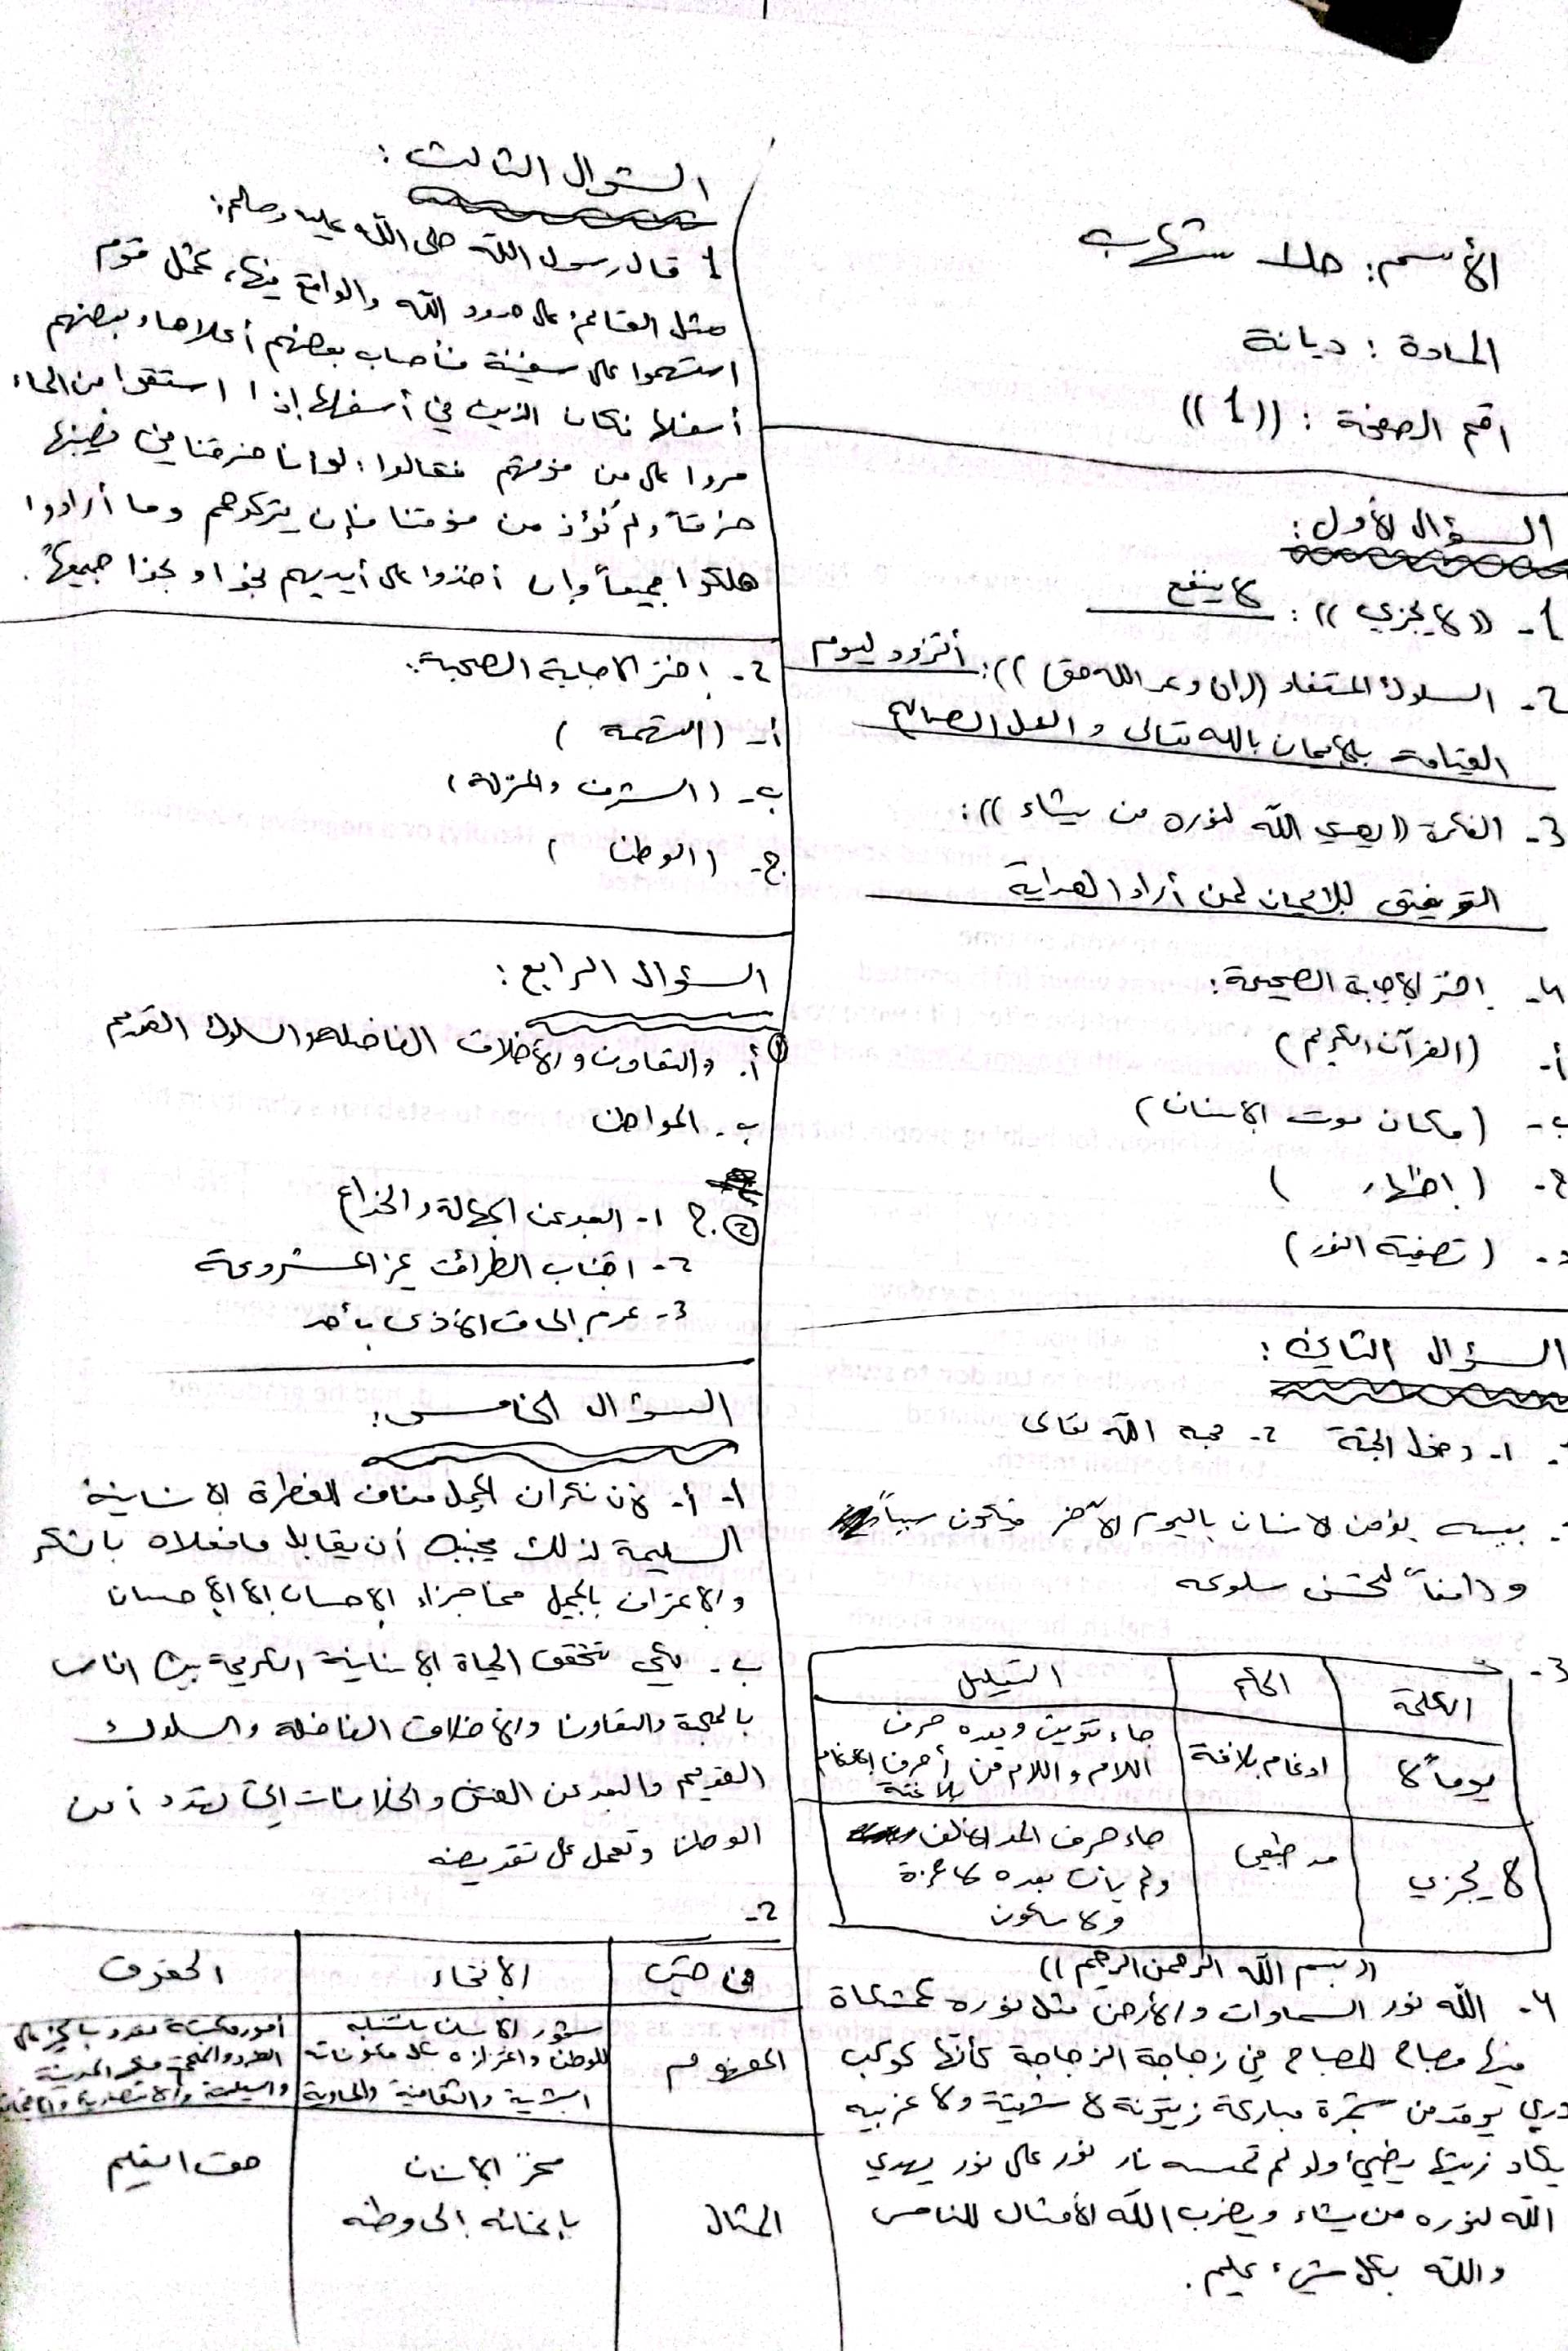 الأسم: حلا شهاب
المادة : ديانة
رقم الصفحة : ((1))
السؤال الأول:
1- ((لا يجزي)) : لا ينفع
2- السلوك المستفاد ((إن وعد الله حق)): أتزود ليوم
القيامة بالإيمان بالله تعالى والعمل الصالح
3- الفكرة ((يهدي الله لنوره من يشاء)):
التوفيق للإيمان لمن أراد الهداية
4- اختر الأجابة الصحيحة:
أ- (القرآن الكريم)
ب- (مكان موت الإنسان)
ج- (إظهار)
د- (تصفية النور)
السؤال الثاني:
1- دخول الجنة 2- محبة الله تعالى
يؤمن الانسان باليوم الآخر فيكون سبباً
ودافعاً لتحسن سلوكه
3-
الكلمة الحكم التعليل
يوماً لا ادغام بلاغنة جاء تنوين وبعده حرف
اللام واللام من أحرف الإدغام
بلاغنة
لا يجزي مد طبيعي جاء حرف المد الالف
ولم يأت بعده لا همزة
ولا سكون
((بسم الله الرحمن الرحيم))
4- الله نور السماوات والأرض مثل نوره كمشكاة
فيها مصباح المصباح في زجاجة الزجاجة كأنها كوكب
دري يوقد من شجرة مباركة زيتونة لا شرقية ولا غربيه
يكاد زيتها يضيء ولو لم تمسسه نار نور على نور يهدي
الله لنوره من يشاء ويضرب الله الأمثال للناس
والله بكل شيء عليم.
السؤال الثالث:
1 قال رسول الله صلى الله عليه وسلم:
مثل القائم على حدود الله والواقع فيها، كمثل قوم
استهموا على سفينة فأصاب بعضهم أعلاها وبعضهم
أسفلها فكان الذين في أسفلها إذا استقوا من الماء
مروا على من فوقهم فقالوا: لو أنا خرقنا في نصيبنا
خرقاً ولم نؤذ من فوقنا فإن يتركوهم وما أرادوا
هلكوا جميعاً وإن أخذوا على أيديهم نجوا ونجوا جميعاً.
2- اختر الاجابة الصحيحة:
أ- (التهمة)
ب- (الشرف والمنزلة)
ج- (الوطن)
السؤال الرابع:
1 أ. والتعاون والأخلاق الفاضلة والسلوك القويم
ب. المواطن
2 ج 1- البعد عن الجهالة والخداع
2- اجتناب الطرائق غير المشروعة
3- عدم إلحاق الأذى بأحد
السؤال الخامس:
1- أ- لأن نكران الجميل مناف للفطرة الإنسانية
السليمة لذلك يجب أن يقابل ما فعلاه بالشكر
والاعتراف بالجميل فما جزاء الإحسان إلا الإحسان
ب- لكي تتحقق الحياة الإنسانية الكريمة بين الناس
بالمحبة والتعاون والأخلاق الفاضلة والسلوك
القويم والبعد عن الفتن والخلافات التي تهدد أمن
الوطن وتعمل على تقويضه
2-
من حيث الإنتماء الحقوق
المفهوم شعور الإنسان بنسبه
للوطن واعتزازه بكل مكوناته
البشرية والثقافية والمادية
المثال فخر الإنسان
بانتمائه إلى وطنه حق التعليم